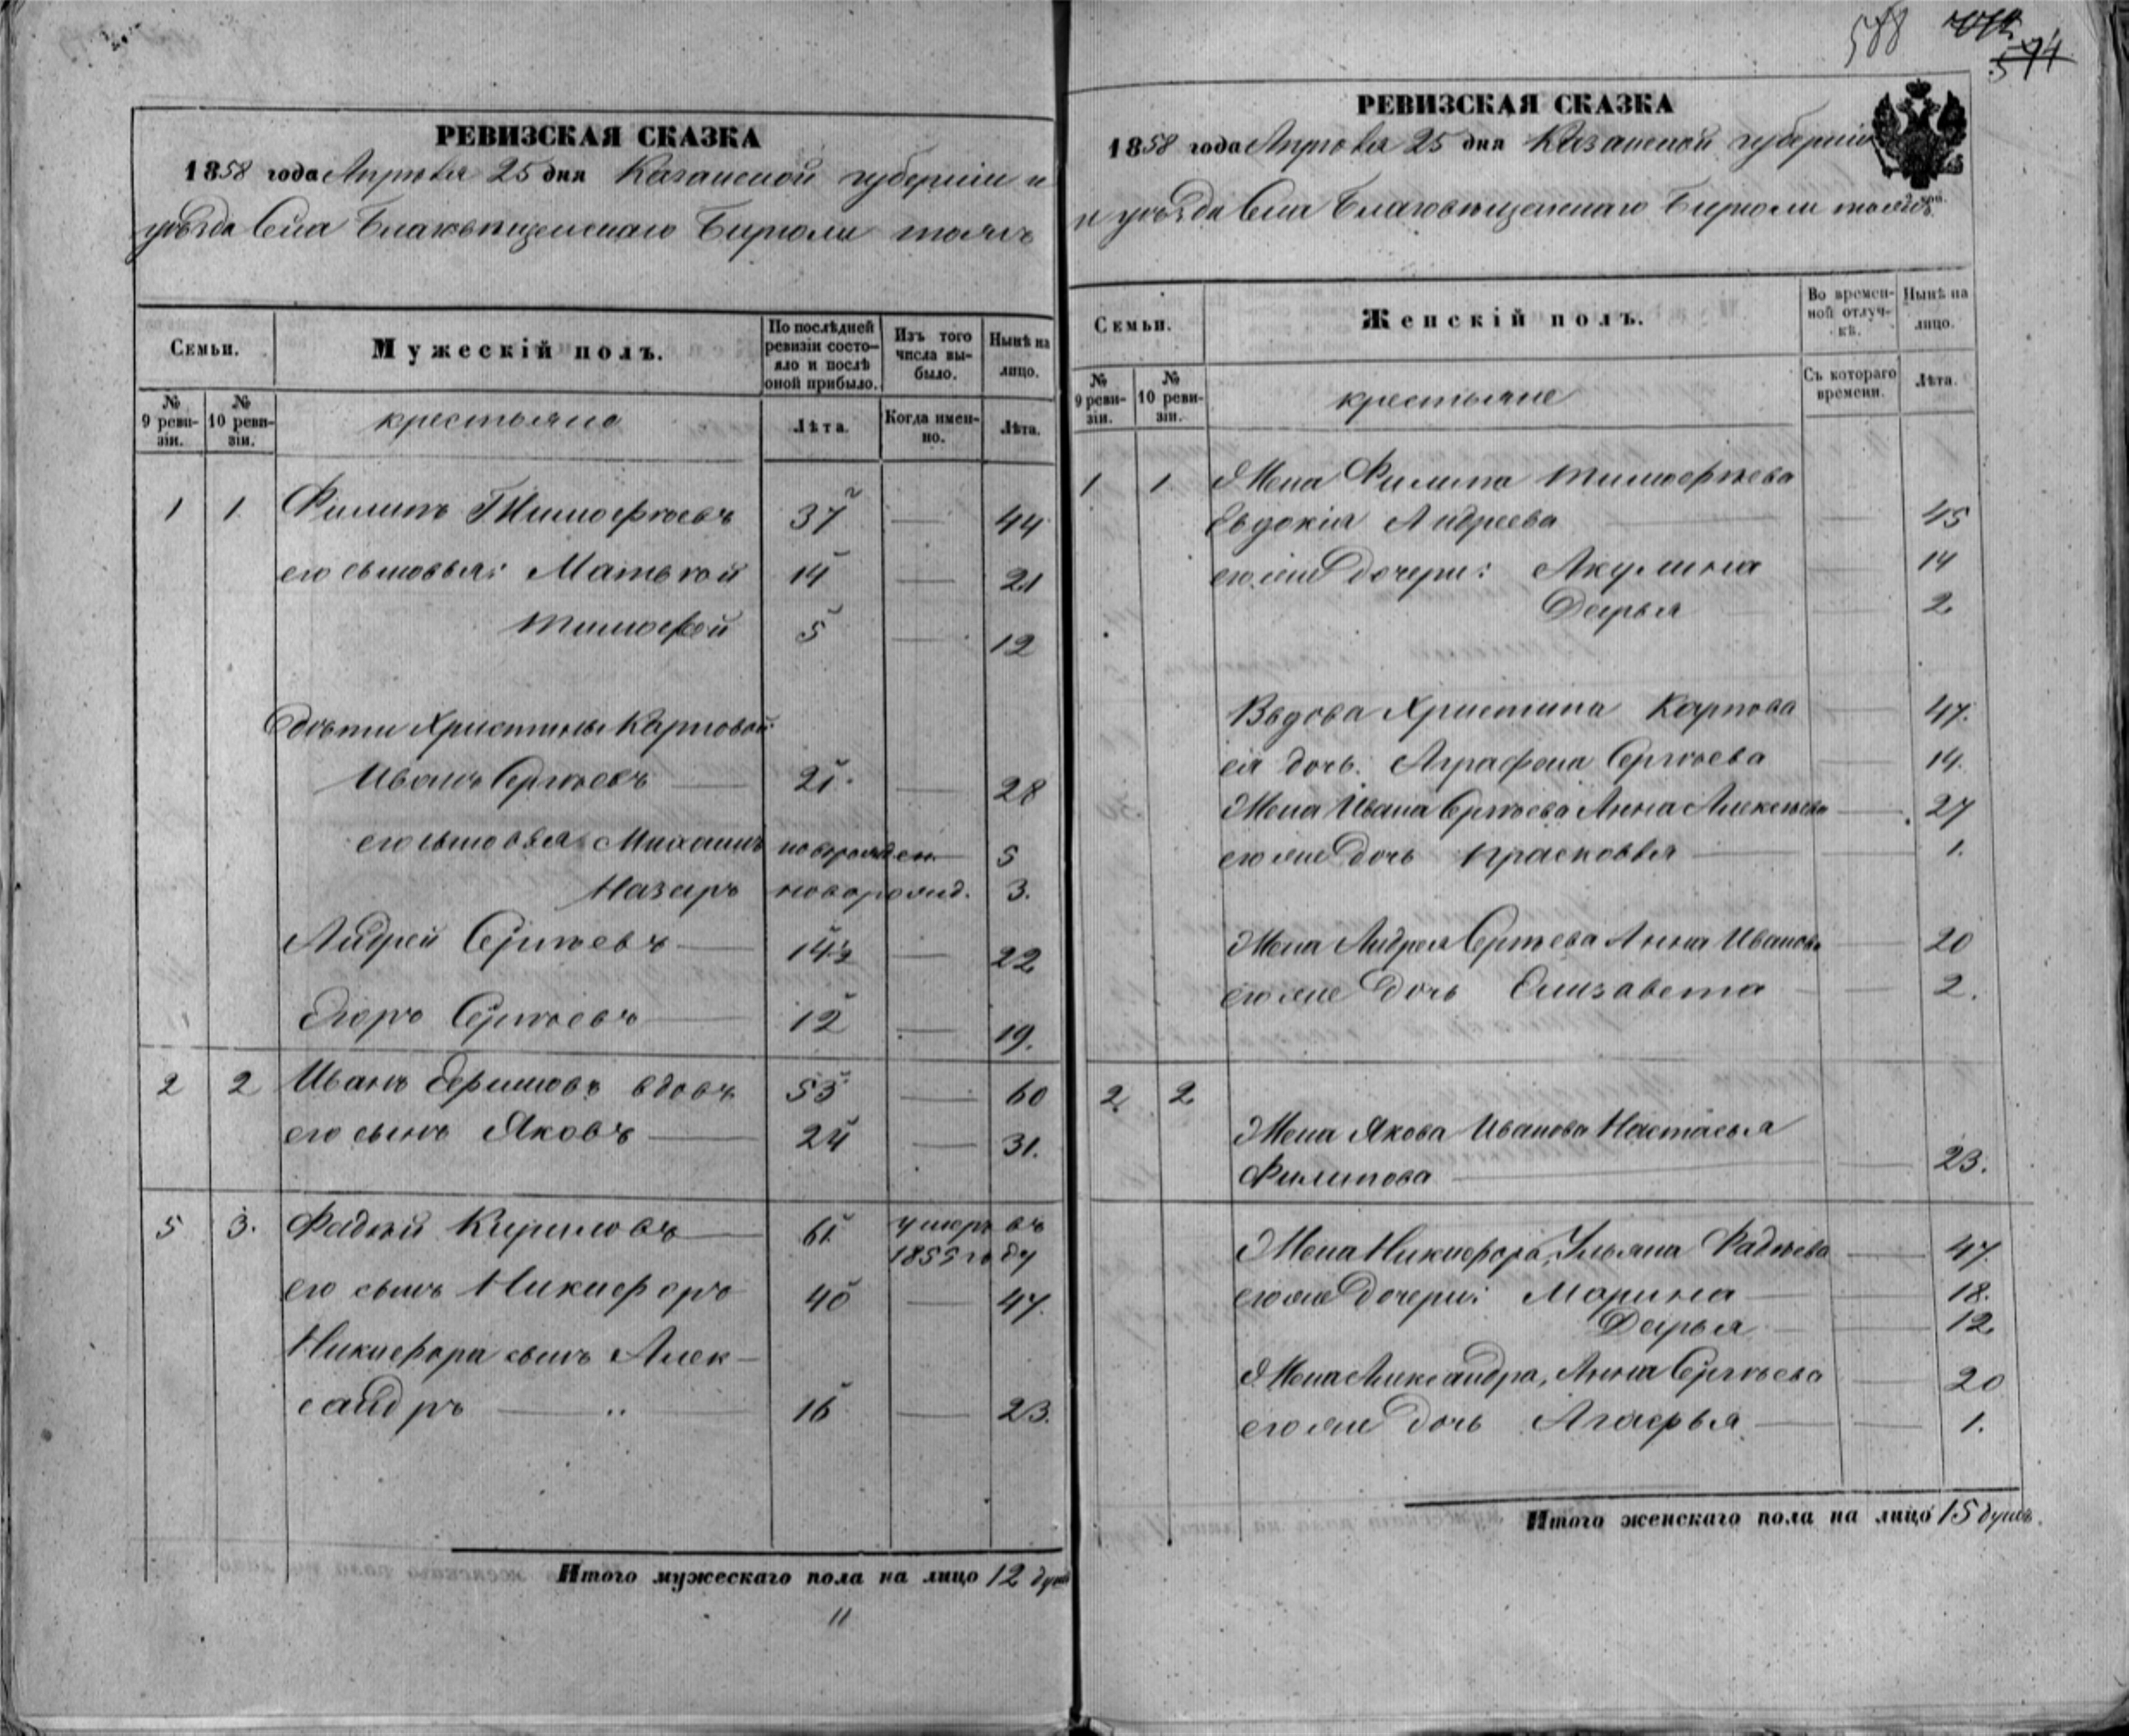 РЕВИЗСКАЯ СКАЗКА
1858 года Апрѣля 25 дня Казанской губерніи и
уѣзда Села Благовѣщенскаго Бирюли тожъ
Семьи.
Мужескій полъ.
По послѣдней ревизіи состояло и послѣ оной прибыло.
Изъ того числа выбыло.
Нынѣ на лицо.
№ 9 ревизіи.
№ 10 ревизіи.
крестьяне
Лѣта.
Когда именно.
Лѣта.
1 1 Филипъ Тимофѣевъ 37 — 44
его сыновья: Матвѣй 14 — 21
Тимофей 5 — 12
Дѣти Христины Карповой:
Иванъ Сергѣевъ — 21 — 28
его сыновья Михаилъ новорожден. 5
Назаръ новорожд. 3.
Андрей Сергѣевъ — 14½ — 22
Егоръ Сергѣевъ — 12 — 19.
2 2 Иванъ Ефимовъ вдовъ 53 — 60
его сынъ Яковъ — 24 — 31.
5 3. Фадѣй Кириловъ — 61 умеръ въ
1855 году
его сынъ Никифоръ 40 — 47.
Никифора сынъ Алек-
сандръ — 16 — 23.
Итого мужескаго пола на лицо 12 душъ
11
588
574
РЕВИЗСКАЯ СКАЗКА
1858 года Апрѣля 25 дня Казанской губерніи
и уѣзда Села Благовѣщенскаго Бирюли тожъ.
Семьи.
Женскій полъ.
Во временной отлучкѣ.
Нынѣ на лицо.
№ 9 ревизіи.
№ 10 ревизіи.
крестьяне
Съ котораго времени.
Лѣта.
1 1. Жена Филипа Тимофѣева
Евдокія Андреева — 45
его же дочери: Акулина — 14
Дарья — 2
Вдова Христина Карпова — 47.
ея дочь: Аграфена Сергѣева — 14.
Жена Ивана Сергѣева Анна Алексѣева — 27
его же дочь Прасковья — 1.
Жена Андрея Сергѣева Анна Иванова — 20
его же дочь Елизавета — 2.
2. 2
Жена Якова Иванова Настасья
Филипова — 23.
Жена Никифора, Ульяна Фадѣева — 47.
его же дочери: Марина — 18.
Дарья — 12
Жена Александра, Анна Сергѣева — 20
его же дочь Агафья — 1.
Итого женскаго пола на лицо 15 душъ.